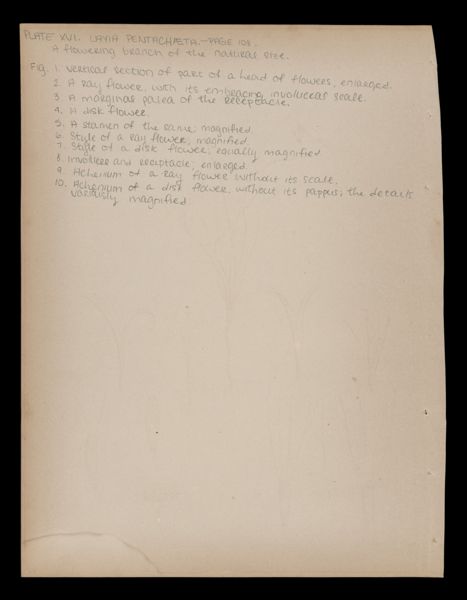 PLATE XVI. LAYIA PENTACHÆTA.—PAGE 108.
A flowering branch of the natural size.
Fig. 1. Vertical section of part of a head of flowers, enlarged.
2. A ray flower, with its embracing involuceal scale.
3. A marginal palea of the receptacle.
4. A disk flower.
5. A stamen of the same, magnified.
6. Style of a ray flower, magnified.
7. Style of a disk flower, equally magnified.
8. Involucre and receptacle, enlarged.
9. Achenium of a ray flower without its scale.
10. Achenium of a disk flower, without its pappus; the details
variously magnified.